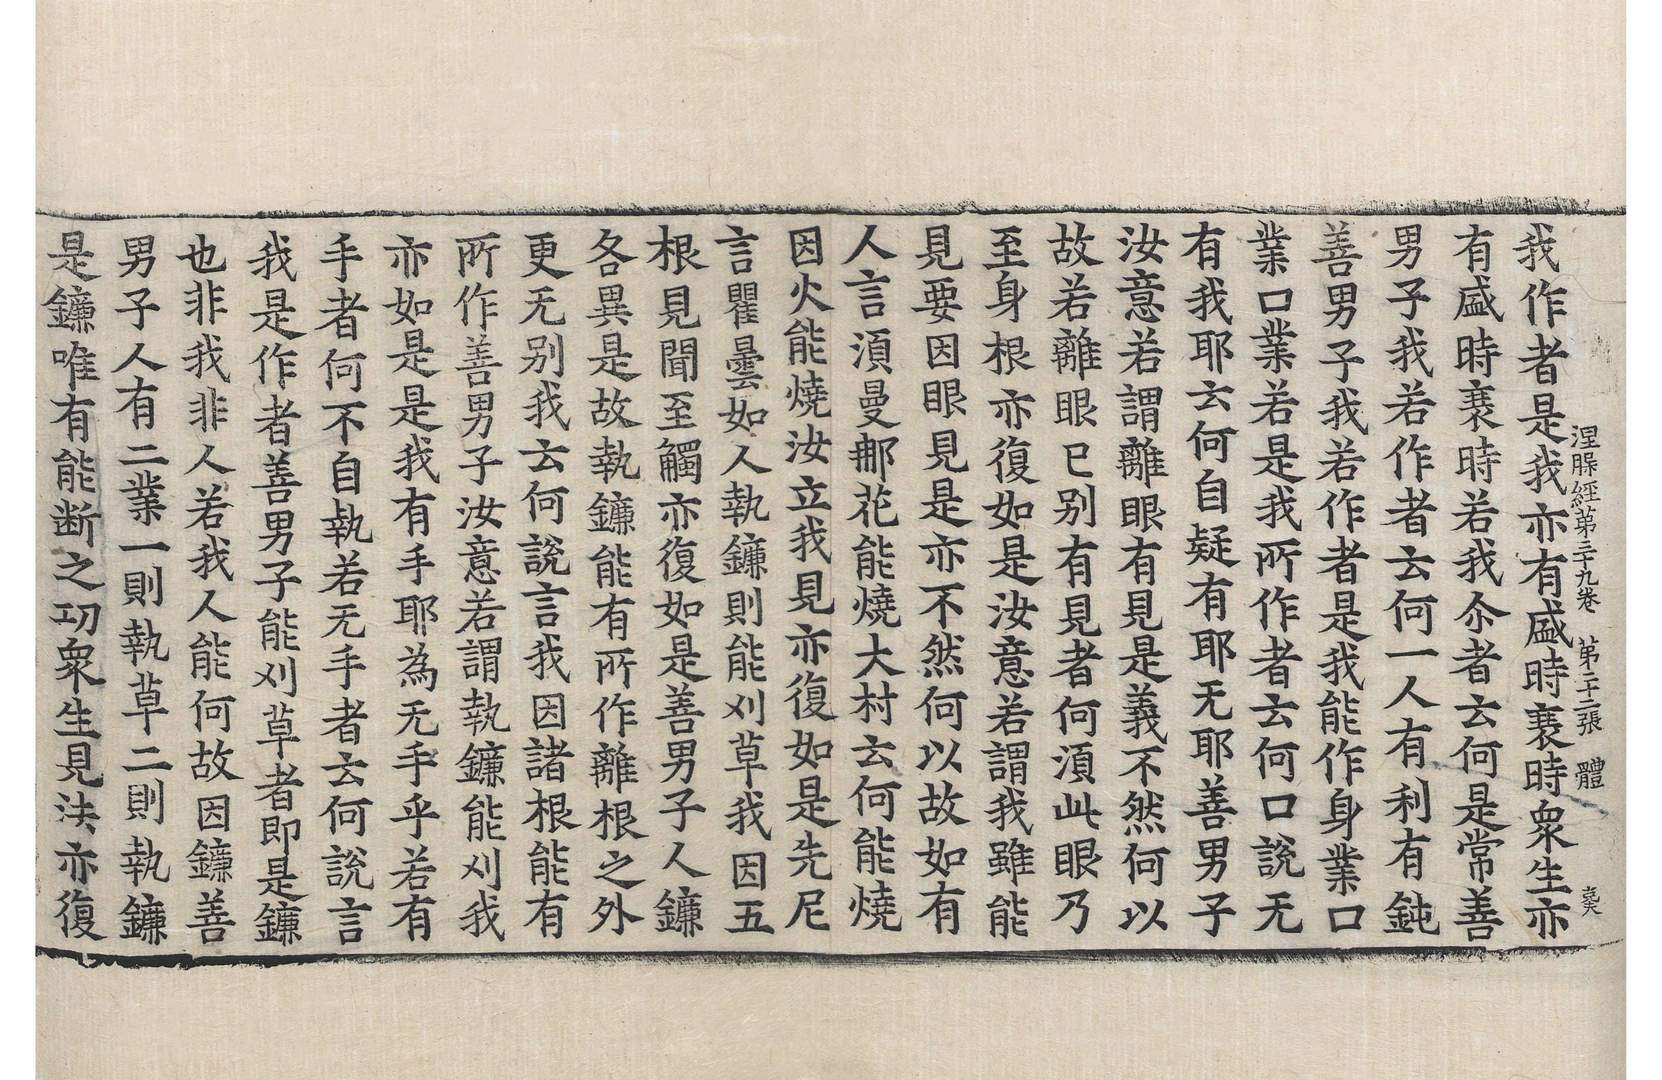 涅脲經第三十九卷 第二十二張 體
我作者是我亦有盛時衰時衆生亦
有盛時衰時若我尒者云何是常善
男子我若作者云何一人有利有鈍
善男子我若作者是我能作身業口
業口業若是我所作者云何口說无
有我耶云何自疑有耶无耶善男子
汝意若謂離眼有見是義不然何以
故若離眼已别有見者何湏此眼乃
至身根亦復如是汝意若謂我雖能
見要因眼見是亦不然何以故如有
人言湏曼那花能燒大村云何能燒
因火能燒汝立我見亦復如是先尼
言瞿曇如人執鐮則能刈草我因五
根見聞至觸亦復如是善男子人鐮
各異是故執鐮能有所作離根之外
更无别我云何說言我因諸根能有
所作善男子汝意若謂執鐮能刈我
亦如是是我有手耶為无手乎若有
手者何不自執若无手者云何說言
我是作者善男子能刈草者即是鐮
也非我非人若我人能何故因鐮善
男子人有二業一則執草二則執鐮
是鐮唯有能断之功衆生見法亦復